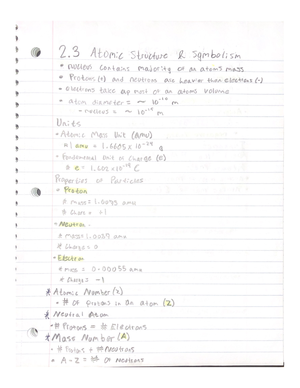 2.3 Atomic Structure & Symbolism
• nucleus contains majority of an atom's mass
• Protons (+) and neutrons are heavier than electrons (-)
• electrons take up most of an atoms volume
• Atom diameter = ~ 10⁻¹⁰ m
• nucleus = ~ 10⁻¹⁵ m
Units
• Atomic Mass Unit (amu)
1 amu = 1.6605 × 10⁻²⁴ g
• Fundamental Unit of Charge (e)
e = 1.602 × 10⁻¹⁹ C
Properties of Particles
• Proton
mass = 1.0073 amu
charge = +1
• Neutron
mass = 1.0087 amu
charge = 0
• Electron
mass = 0.00055 amu
charge = -1
* Atomic Number (Z)
• # of protons in an atom (Z)
* Neutral Atom
• # Protons = # Electrons
* Mass Number (A)
• # Protons + # Neutrons
• A - Z = # of Neutrons